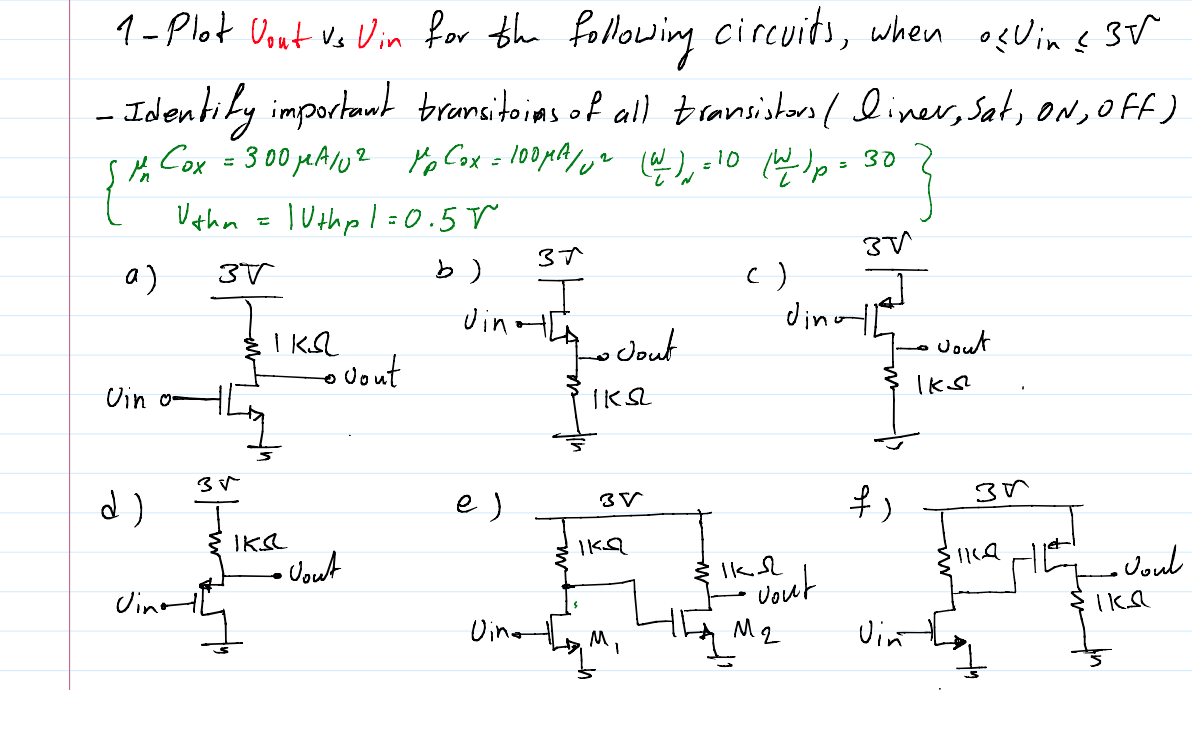 1-Plot Vout vs Vin for the following circuits, when 0≤Vin≤3V
- Identify important transitoins of all transistors (liner, Sat, ON, OFF)
{ μnCox = 300μA/V² μpCox = 100μA/V² (W/L)N = 10 (W/L)p = 30 }
Vthn = |Vthp| = 0.5V
a) 3V
1KΩ
Vout
Vin
b) 3V
Vin
Vout
1KΩ
c) 3V
Vin
Vout
1KΩ
d) 3V
1KΩ
Vout
Vin
e) 3V
1KΩ
1KΩ
Vout
Vin M1 M2
f) 3V
1KΩ
Vout
1KΩ
Vin